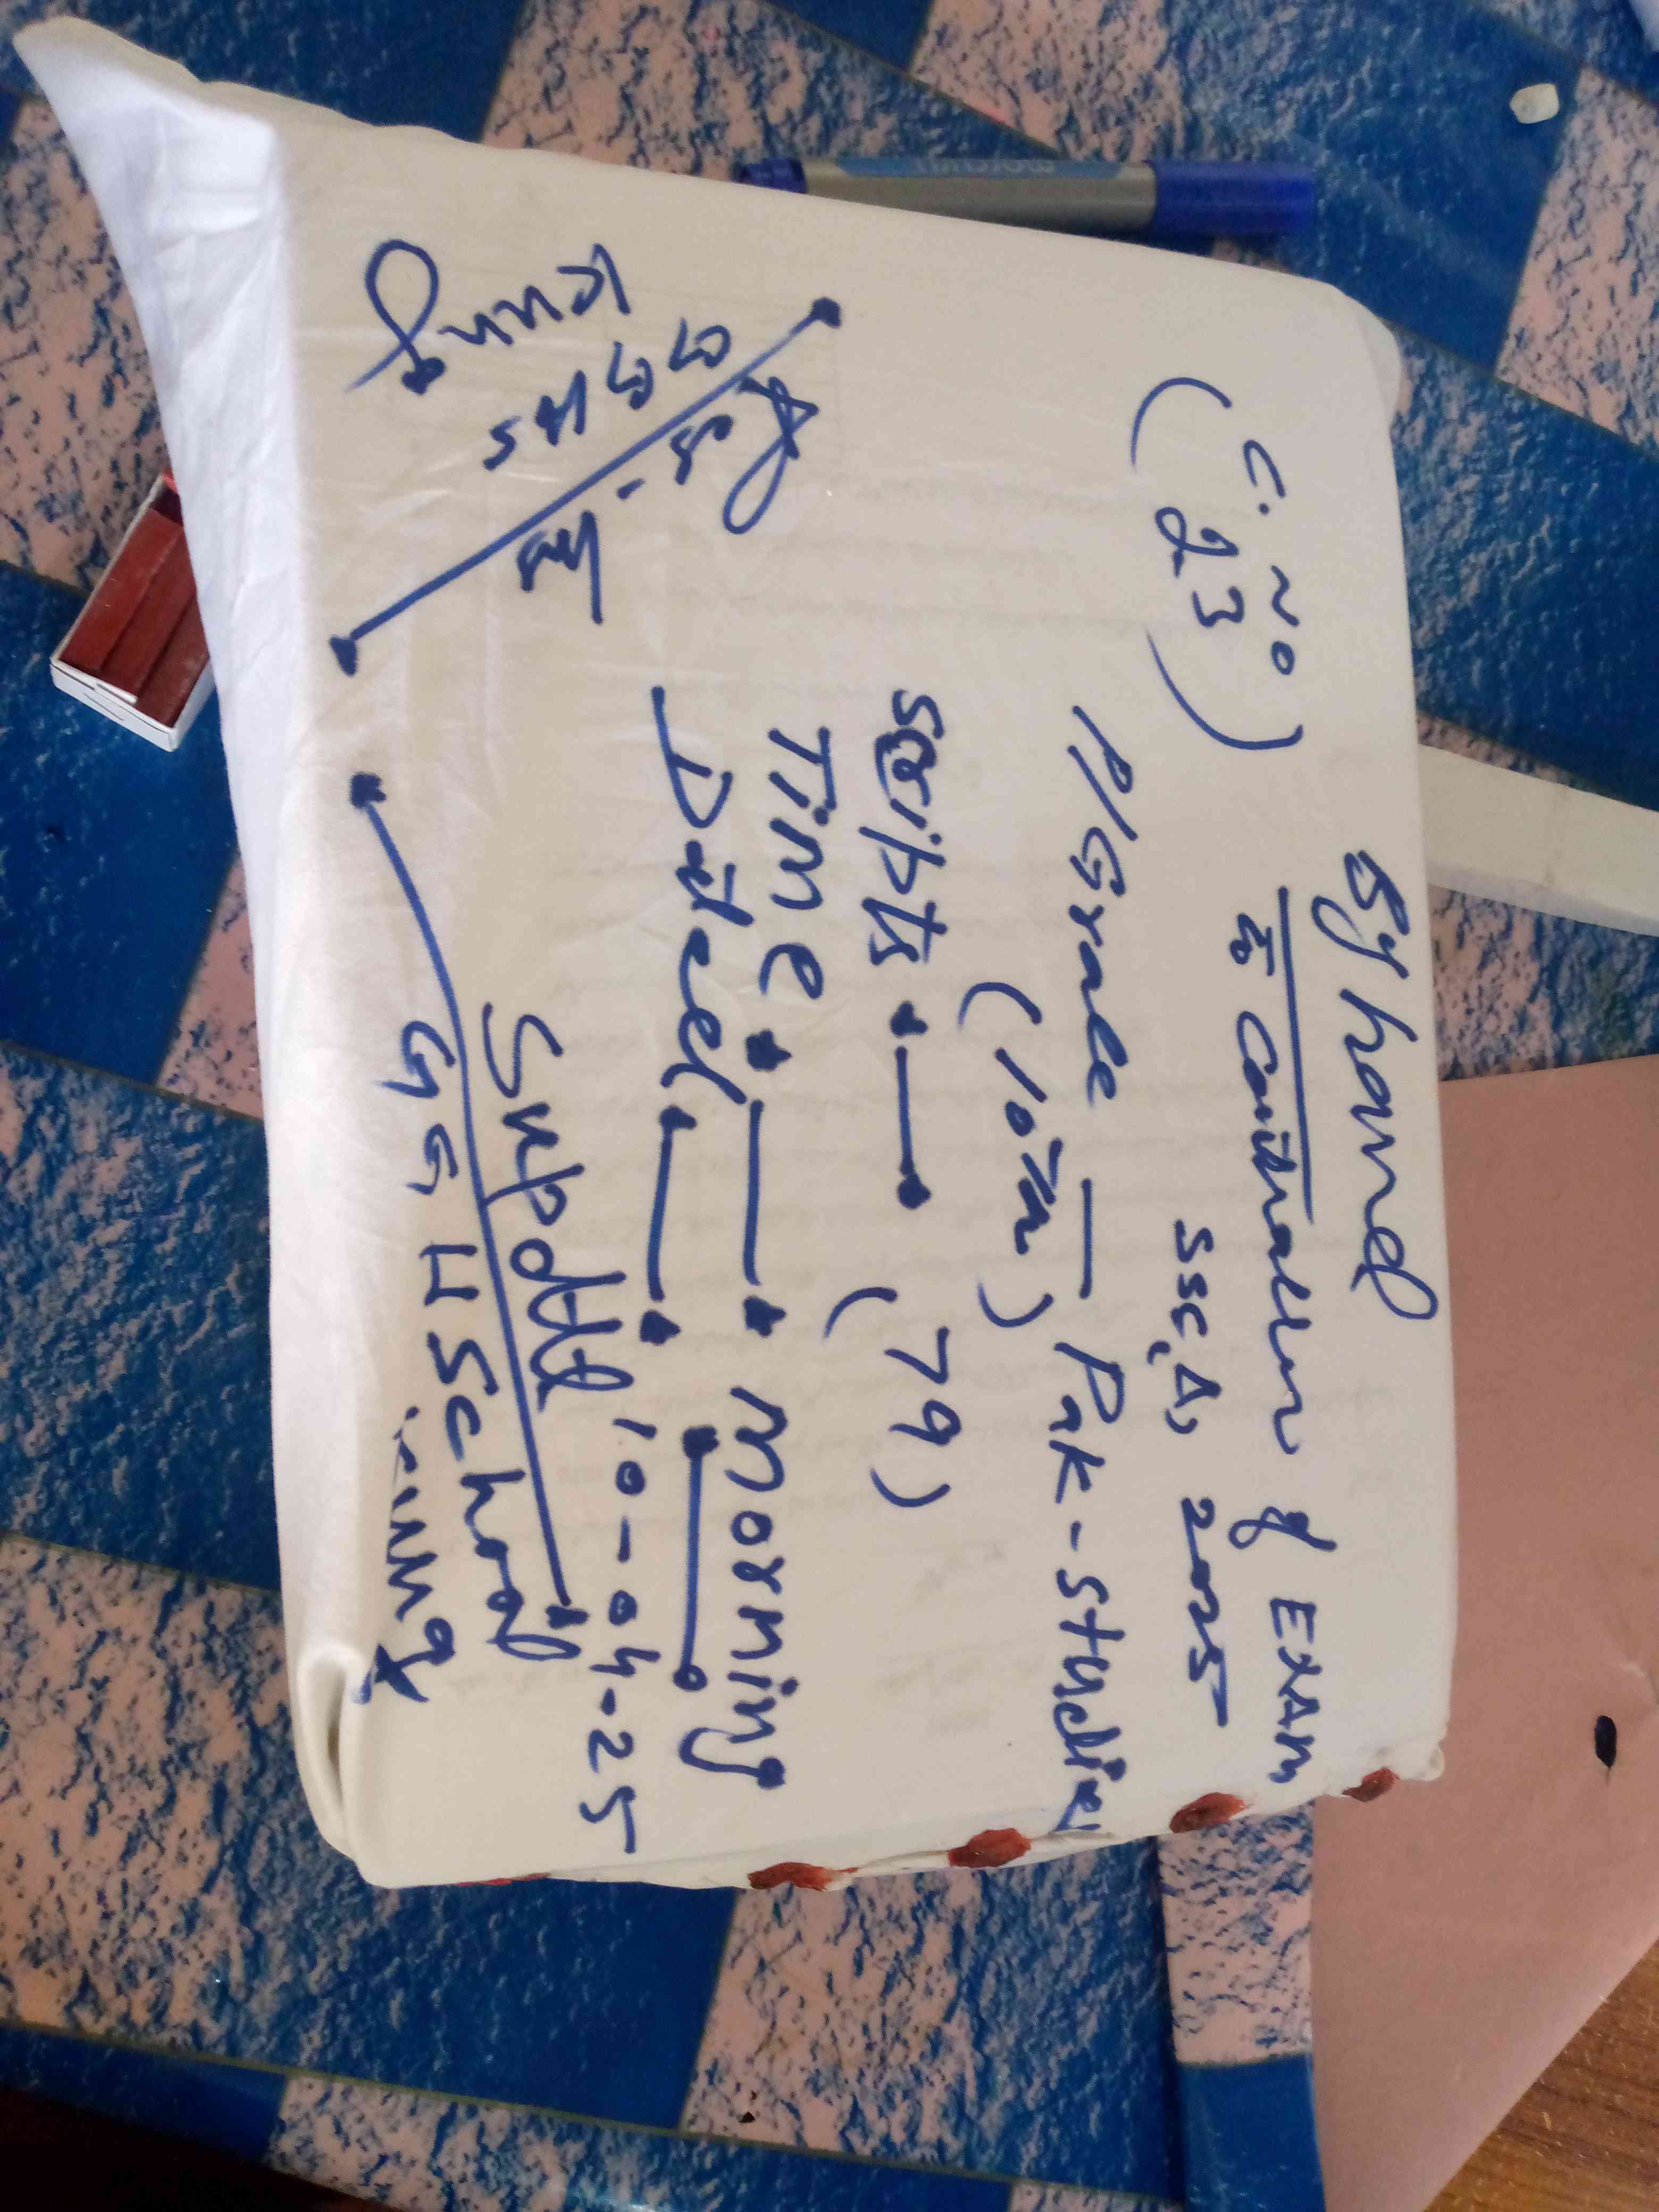 By hand
To Controller of Exam
SSC, A, 2025
C. No
(23)
P/Grade — Pak-Studies
(10th)
Scripts — (79)
Time — morning
Dated — 10-04-25
Supdtt
G G H School
GGHS